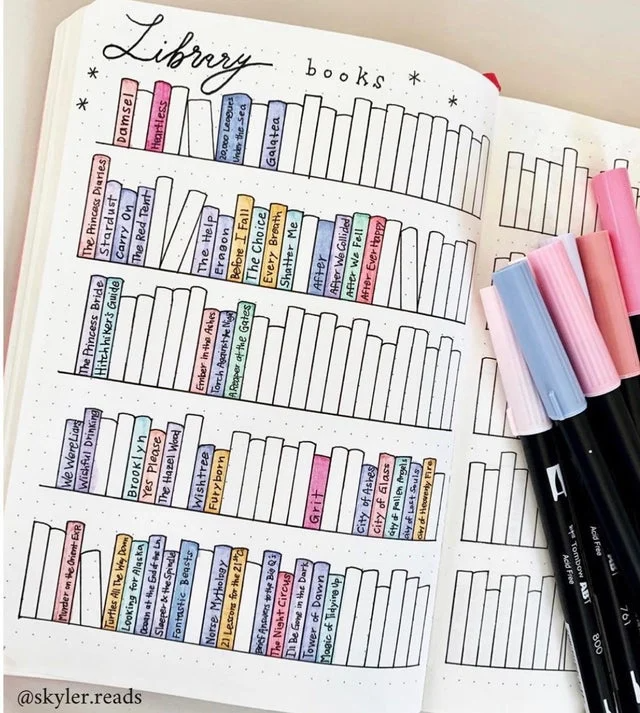 Library books
Damsel
Heartless
20,000 Leagues
Under the Sea
Galatea
The Princess Diaries
Stardust
Carry On
The Red Tent
The Help
Eragon
Before I Fall
The Choice
Every Breath
Shatter Me
After
After We Collided
After We Fell
After Ever Happy
The Princess Bride
Hitchhiker's Guide
Ember in the Ashes
Torch Against the Night
A Reaper at the Gates
We Were Liars
Wishful Drinking
Brooklyn
Yes Please
The Hazel Wood
Wishtree
Furyborn
Grit
City of Ashes
City of Glass
City of Fallen Angels
City of Lost Souls
City of Heavenly Fire
Murder on the Orient Exp.
Turtles All the Way Down
Looking for Alaska
Ocean at the End of the Ln.
Sleeper & the Spindle
Fantastic Beasts
Norse Mythology
21 Lessons for the 21st C
Brief Answers to the Big Q's
The Night Circus
I'll Be Gone in the Dark
Tower of Dawn
Magic of Tidying Up
Tombow ABT
Acid Free
Acid Free
800
761
@skyler.reads